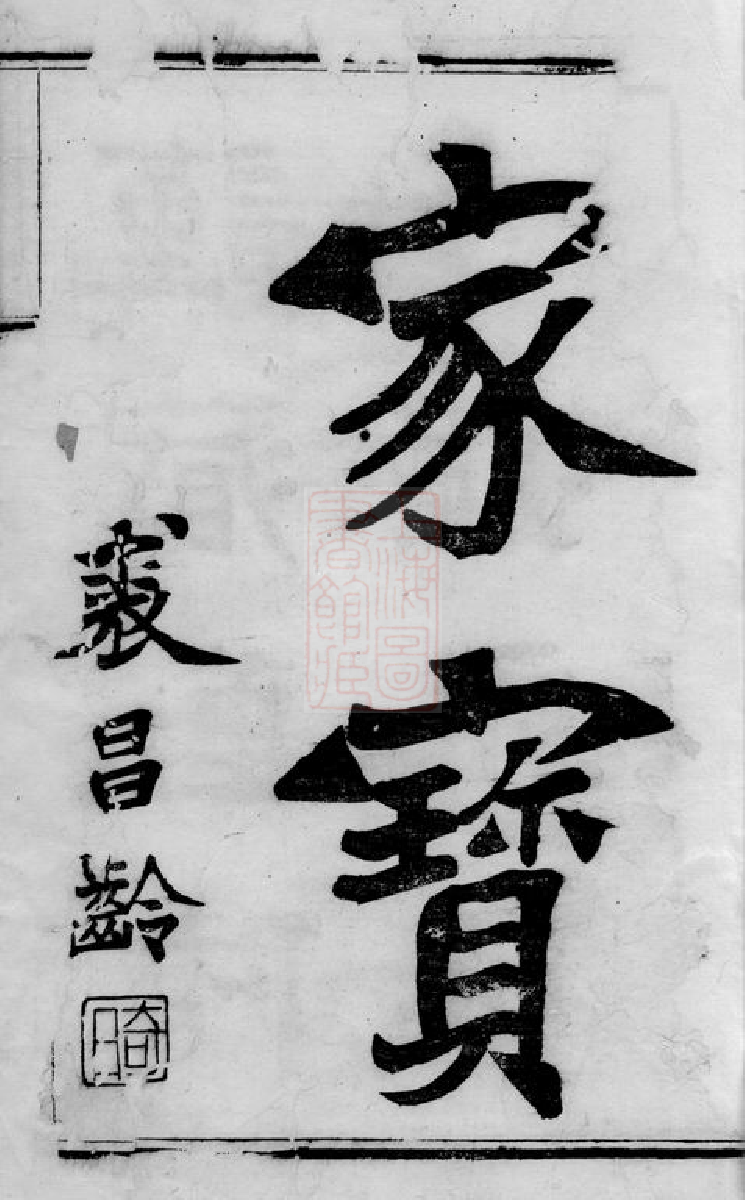 家寶
昌齡
上海圖
書館藏